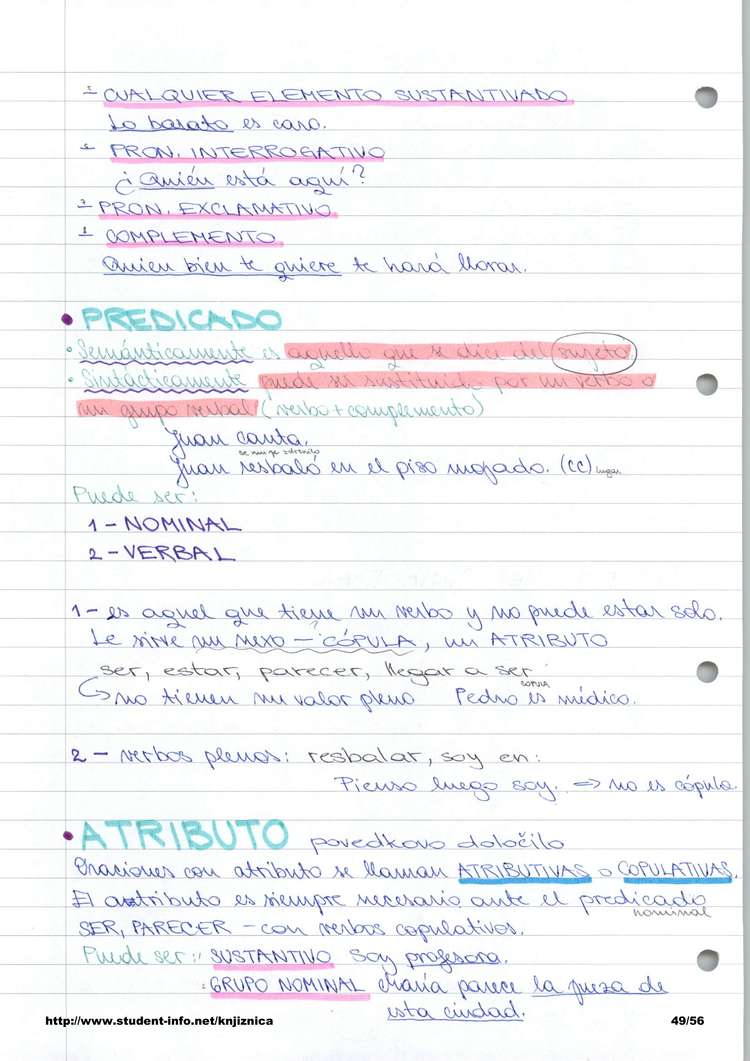 - CUALQUIER ELEMENTO SUSTANTIVADO
Lo barato es caro.
- PRON. INTERROGATIVO
¿Quién está aquí?
- PRON. EXCLAMATIVO
- COMPLEMENTO
Quien bien te quiere te hará llorar.
• PREDICADO
• Semánticamente es aquello que se dice del sujeto
• Sintácticamente puede ser sustituido por un verbo o
un grupo verbal (verbo + complemento)
Juan canta.
Juan resbaló en el piso mojado. (CC) lugar
Puede ser:
1 - NOMINAL
2 - VERBAL
1 - es aquel que tiene un verbo y no puede estar solo.
Le sirve un nexo - CÓPULA, un ATRIBUTO
ser, estar, parecer, llegar a ser
COPULA
no tienen su valor pleno Pedro es médico.
2 - verbos plenos: resbalar, soy en:
Pienso luego soy. => no es cópula.
• ATRIBUTO povedkovo določilo
Oraciones con atributo se llaman ATRIBUTIVAS o COPULATIVAS.
El atributo es siempre necesario ante el predicado
nominal
SER, PARECER - con verbos copulativos.
Puede ser: SUSTANTIVO Soy profesora.
GRUPO NOMINAL María parece la jueza de
esta ciudad.
http://www.student-info.net/knjiznica 49/56